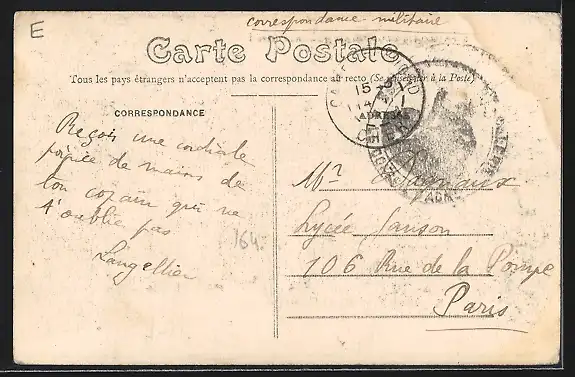 E
correspondance militaire
Carte Postale
Tous les pays étrangers n'acceptent pas la correspondance au recto (Se renseigner à la Poste)
CORRESPONDANCE
ADRESSE
Reçois une cordiale
poignée de mains de
ton copain qui ne
t'oublie pas
Langellier
164-
Mr
Lycée Janson
106 Rue de la Pompe
Paris
15
14